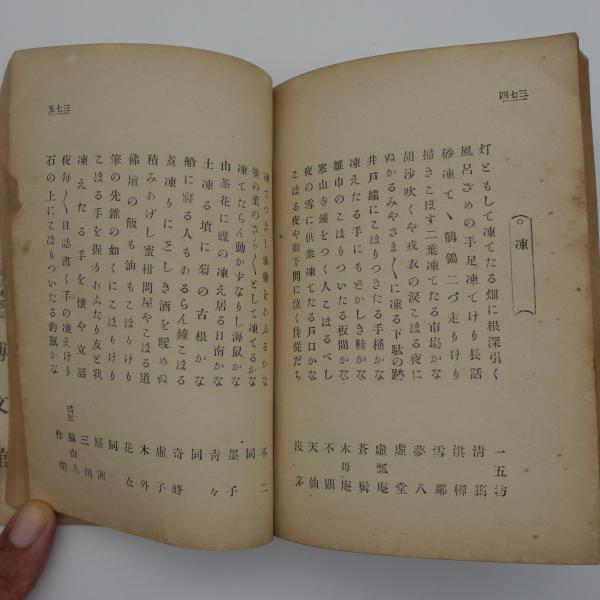 三七四
（◦凍）
灯ともして凍てたる畑に根深引く 一五坊
風呂ざめの手足凍てけり長話 清筠
砂凍てゝ鶺鴒二つ走りけり 淇柳
掃きこぼす二葉凍てたる市場かな 雪鄰
胡沙吹くや戎衣の涙こほる夜に 夢八
ぬかるみやさま〲に凍る下駄の跡 虚堂
井戸端にこほりつきたる手桶かな 虚瓢庵
凍えたる手にもどかしき鞋かな 蒼髯
雑巾のこほりついたる板間かな 木母庵
寒山寺鐘をつく人こほるべし 不關
夜の雪に供祟凍てたる戸口かな 天仙
こほる夜や御下問に泣く侍從だち 淺茅
三七五
凍てつきし油柴をあぶるかな 不二
笹の葉のさら〱として凍てるかな 同
凍てたらん動かずなりし海鼠かな 墨子
山茶花に蝶の凍え居る日南かな 靑々
土凍る墳に菊の古根かな 同
船に寢る人もあるらん鐘こほる 奇峰
糞凍りに乏しき酒を暖めぬ 虚子
積みあげし蜜柑問屋やこほる道 木外
佛壇の飯も油もこほりけり 花女
筆の先錐の如くにこほりけり 同
こほる手を握りあふたり友と我 蘆洲
凍えたる手を懷や立話 三川
夜每〱日誌書く手の凍えけり 蘇山人
石の上にこほりついたる釣瓶かな
博文